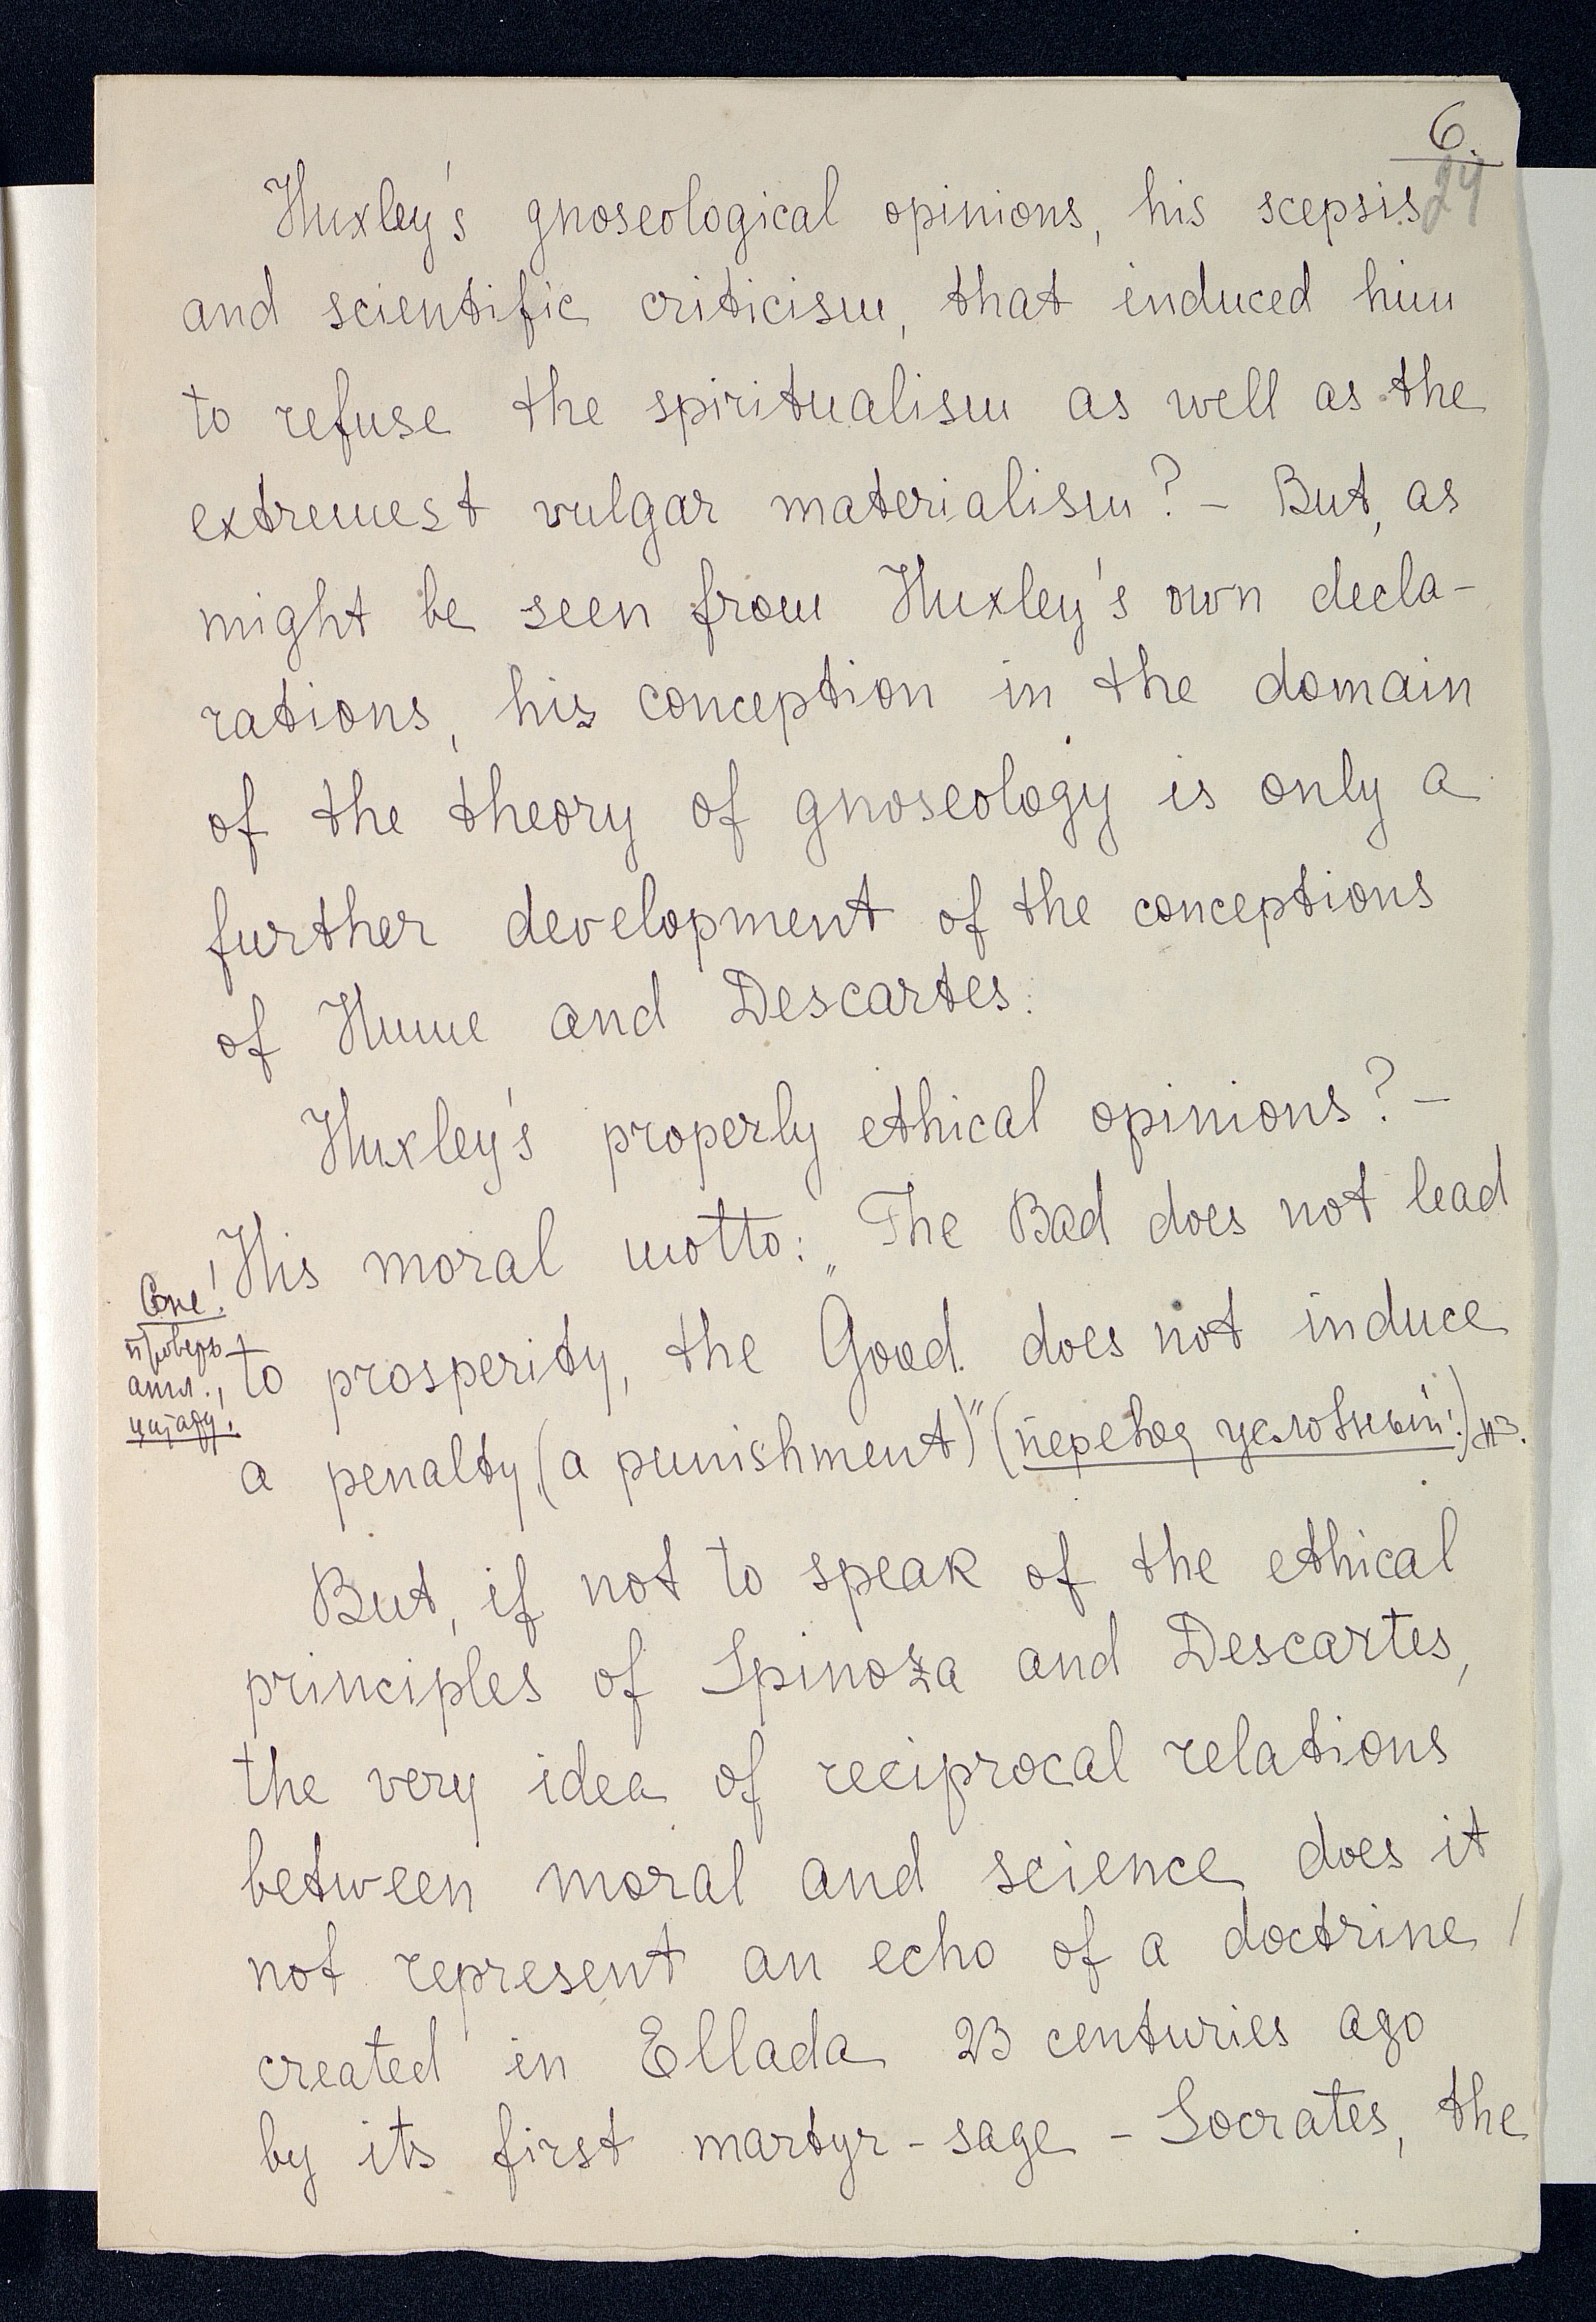 6.
24
Huxley's gnoseological opinions, his scepsis
and scientific criticism, that induced him
to refuse the spiritualism as well as the
extremest vulgar materialism? – But, as
might be seen from Huxley's own decla-
rations, his conception in the domain
of the theory of gnoseology is only a
further development of the conceptions
of Hume and Descartes.
Huxley's properly ethical opinions? –
His moral motto: „The Bad does not lead
to prosperity, the Good does not induce
a penalty, (a punishment)" (перевод условный!)
проверь
англ.
цитату!
But, if not to speak of the ethical
principles of Spinoza and Descartes,
the very idea of reciprocal relations
between moral and science does it
not represent an echo of a doctrine
created in Ellada 23 centuries ago
by its first martyr-sage – Socrates, the